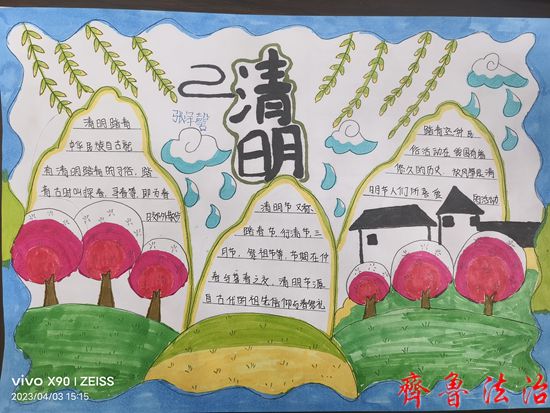 清明
张子馨
清明踏青
中华民族自古就
有清明踏青的习俗，踏
青古时叫探春、寻春等，即为春
日郊外散步
清明节又称
踏青节、行清节、三
月节、祭祖节等，节期在仲
春与暮春之交，清明节源
自古代的祖先信仰与春祭礼
踏青这种民
俗活动在我国有着
悠久的历史，
明节人们所喜爱
的活动
vivo X90 | ZEISS
2023/04/03 15:15
齊魯法治